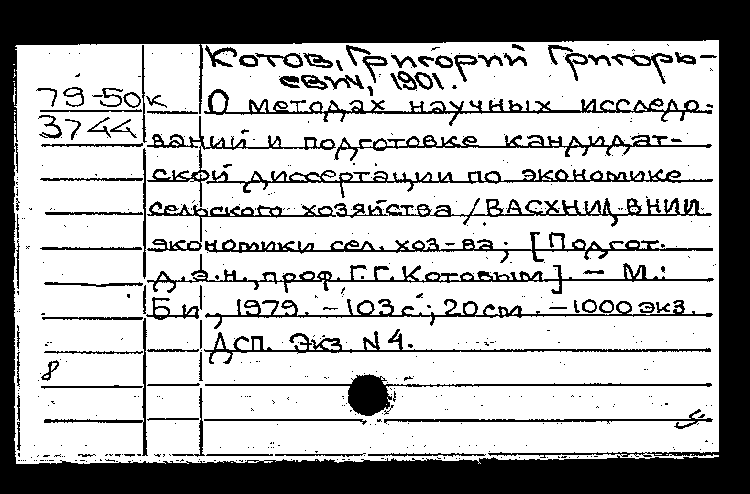 Котов, Григорий Григорь-
евич, 1901.
79-50к О методах научных исследо-
3744
ваний и подготовке кандидат-
ской диссертации по экономике
сельского хозяйства /ВАСХНИЛ, ВНИИ
экономики сел. хоз-ва; [Подгот.
д.э.н., проф. Г.Г. Котовым]. – М.:
Б и, 1979. – 103 с.; 20 см. – 1000 экз.
Дсп. Экз N 4.
8